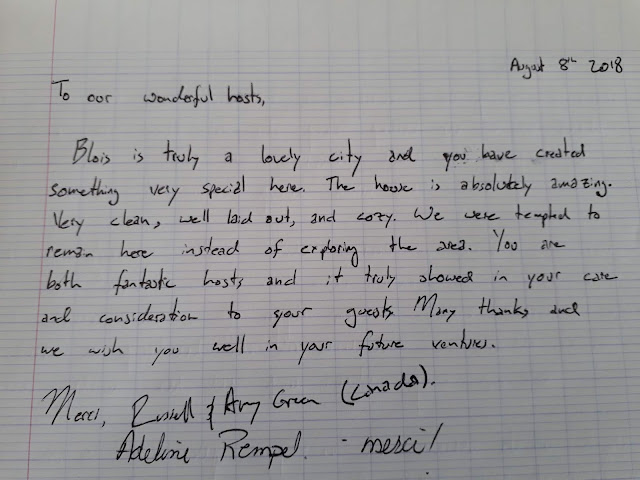 August 8th 2018
To our wonderful hosts,
Blois is truly a lovely city and you have created
something very special here. The house is absolutely amazing.
Very clean, well laid out, and cozy. We were tempted to
remain here instead of exploring the area. You are
both fantastic hosts and it truly showed in your care
and consideration to your guests. Many thanks and
we wish you well in your future ventures.
Merci, Russell & Amy Green (Canada).
Adeline Rempel. - merci!